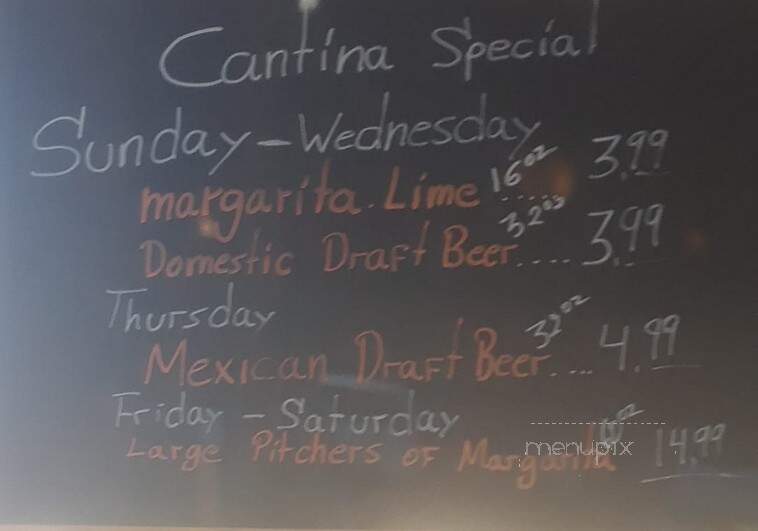 Cantina Special
Sunday - Wednesday
margarita. Lime 16oz ..... 3.99
Domestic Draft Beer 32oz .... 3.99
Thursday
Mexican Draft Beer 32oz .... 4.99
Friday - Saturday
Large Pitchers of Margarita 14.99
menupix